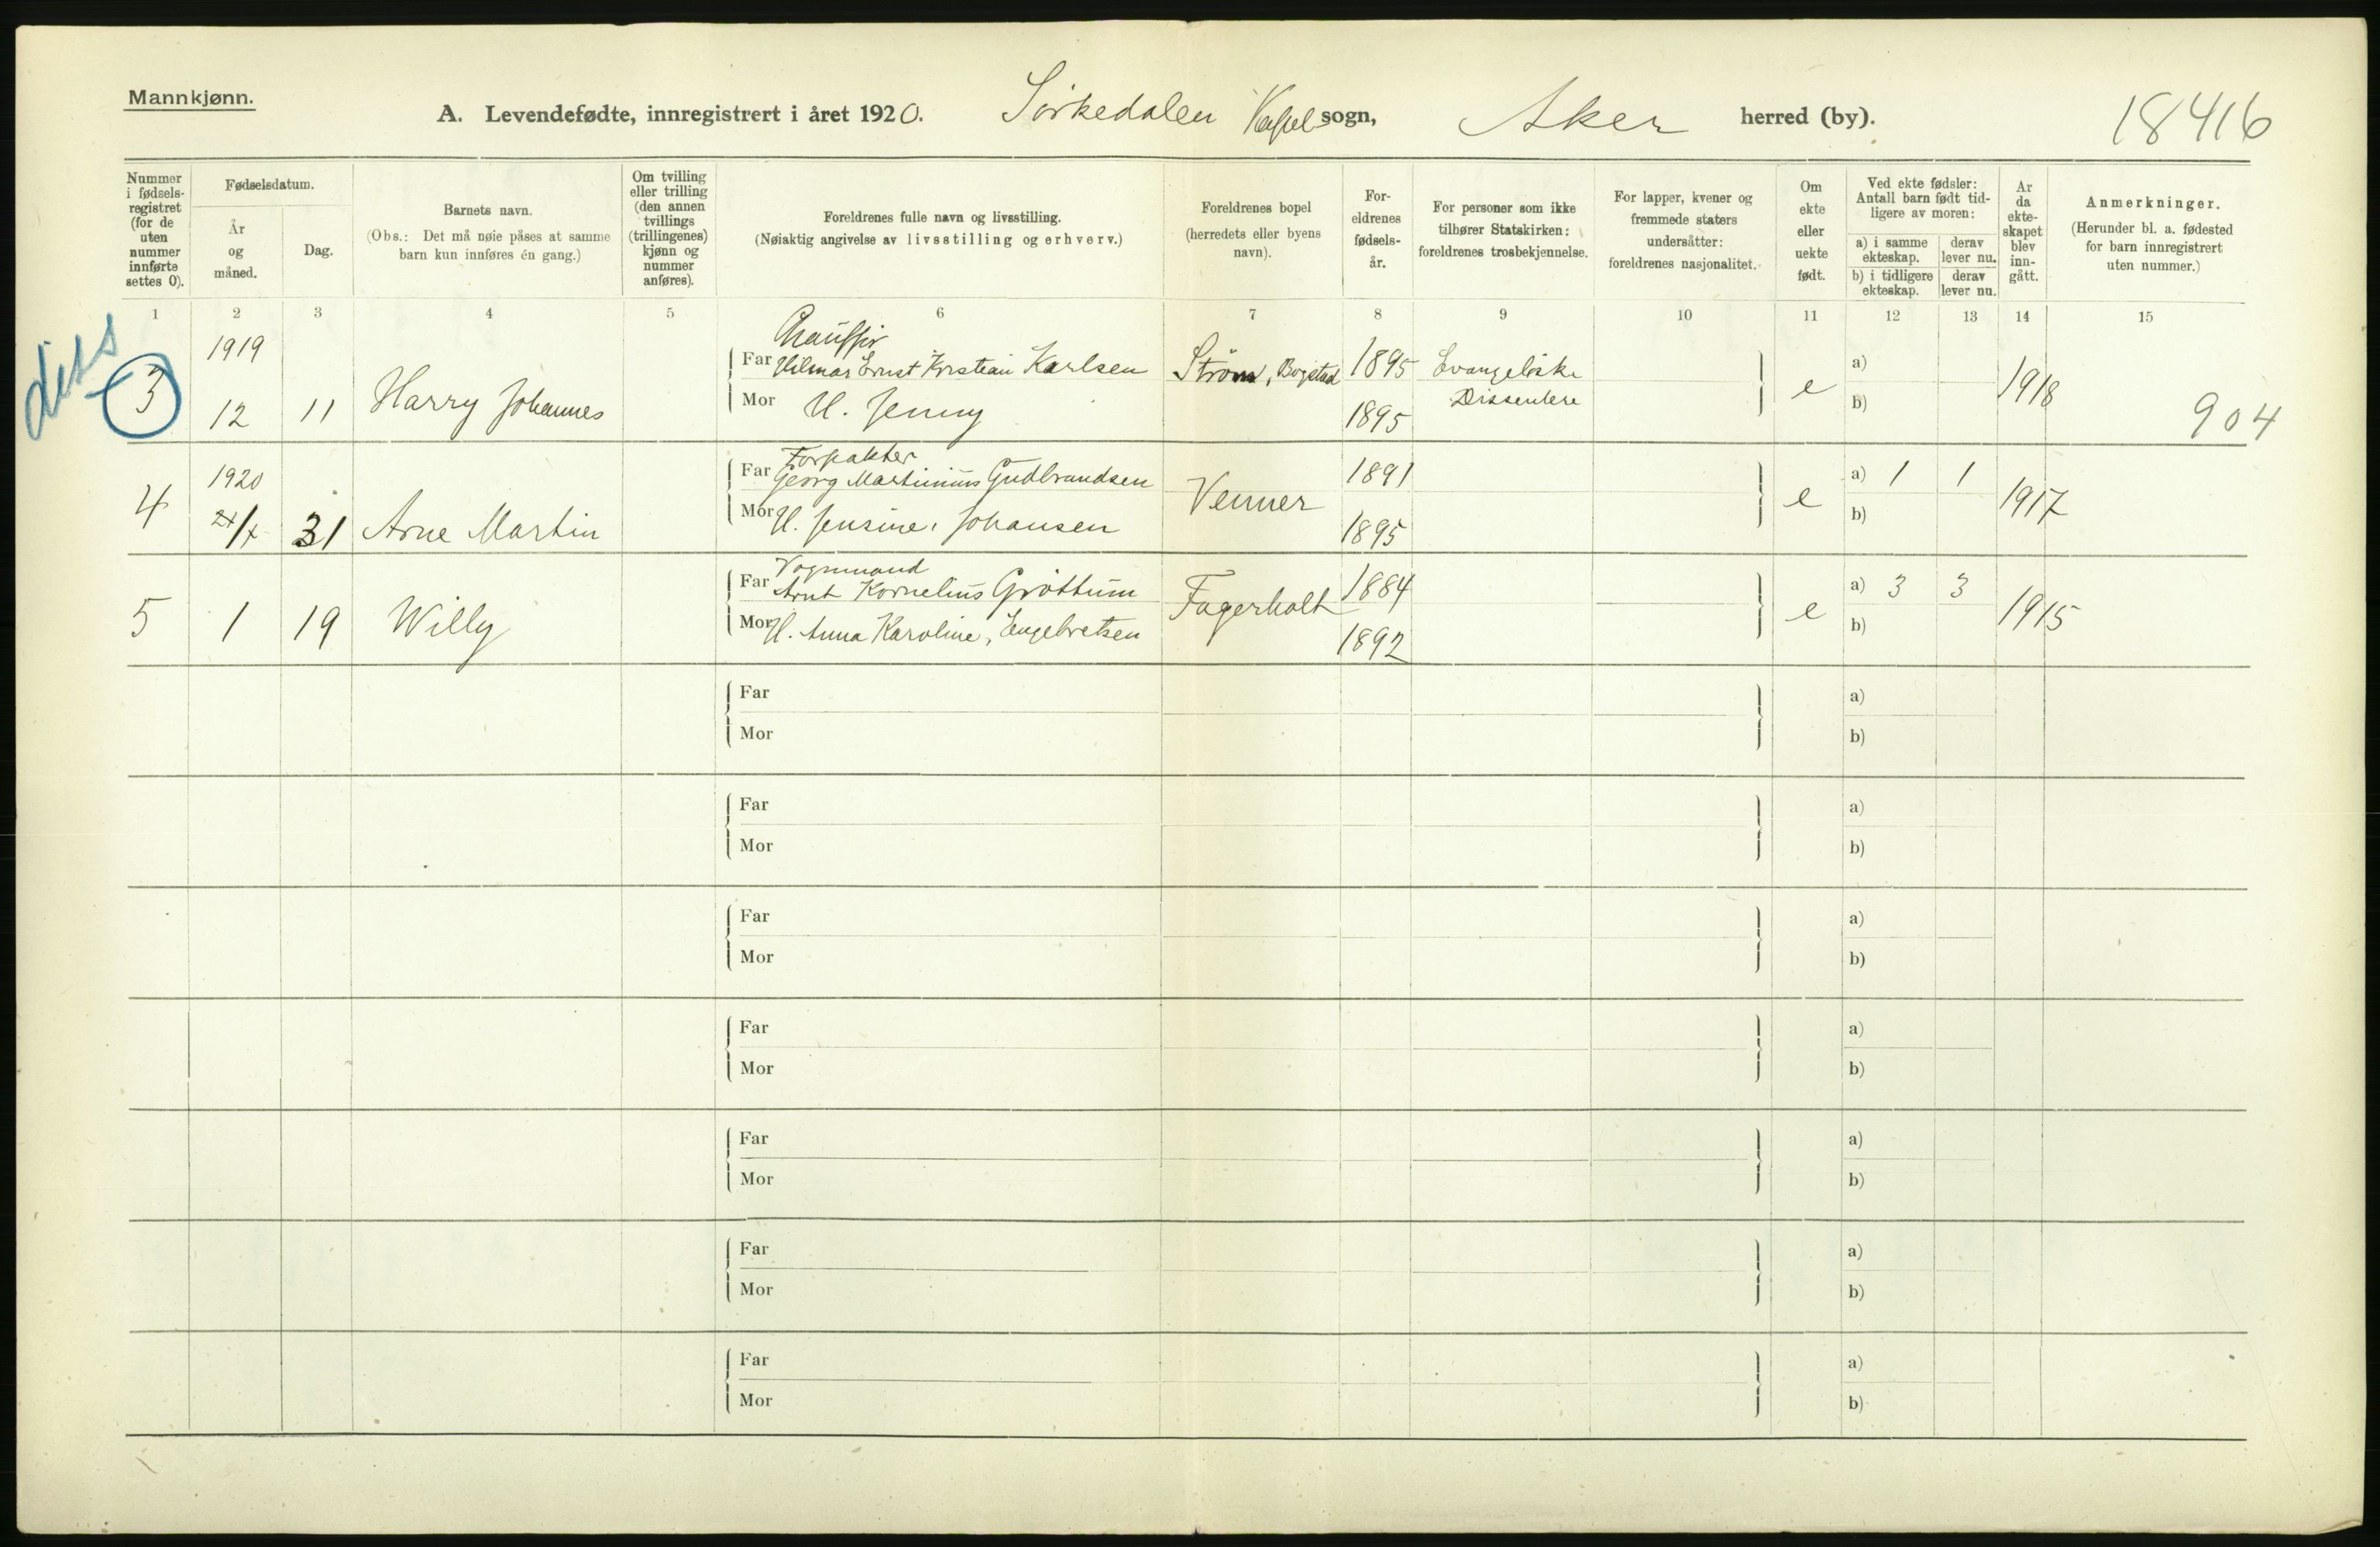 Mannkjønn.
A. Levendefødte, innregistrert i året 1920. Sørkedalen Kapel sogn, Aker herred (by). 18416
Nummer i fødsels-registret (for de uten nummer innførte settes 0).
Fødselsdatum.
År og måned.
Dag.
Barnets navn.
(Obs.: Det må nøie påses at samme barn kun innføres én gang.)
Om tvilling eller trilling (den annen tvillings (trillingenes) kjønn og nummer anføres).
Foreldrenes fulle navn og livsstilling.
(Nøiaktig angivelse av livsstilling og erhverv.)
Foreldrenes bopel (herredets eller byens navn).
For-eldrenes fødsels-år.
For personer som ikke tilhører Statskirken: foreldrenes trosbekjennelse.
For lapper, kvener og fremmede staters undersåtter: foreldrenes nasjonalitet.
Om ekte eller uekte født.
Ved ekte fødsler: Antall barn født tid-ligere av moren:
a) i samme ekteskap.
derav lever nu.
b) i tidligere ekteskap.
derav lever nu.
År da ekte-skapet blev inn-gått.
Anmerkninger.
(Herunder bl. a. fødested for barn innregistrert uten nummer.)
1 2 3 4 5 6 7 8 9 10 11 12 13 14 15
diss
3 1919 12 11 Harry Johannes
Chauffør
Far Hilmar Ernst Kristian Karlsen Strøm, Bogstad 1895 Evangeliske Dissentere
Mor H. Jenny 1895
e a) b) 1918 904
4 1920 31 Arne Martin
Forpakter
Far Georg Martinius Gudbrandsen Venner 1891
Mor H. Jensine, Johansen 1895
e a) 1 1 b) 1917
5 1 19 Willy
Vognmand
Far Arnt Kornelius Grøttum Fagerholt 1884
Mor H. Anna Karoline, Engebretsen 1892
e a) 3 3 b) 1915
Far a)
Mor b)
Far a)
Mor b)
Far a)
Mor b)
Far a)
Mor b)
Far a)
Mor b)
Far a)
Mor b)
Far a)
Mor b)